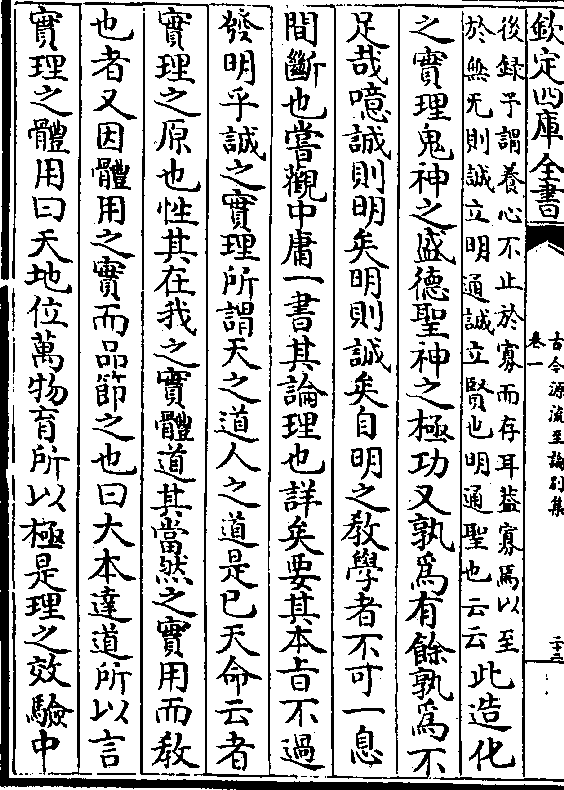 欽定四庫全書
古今源流至論別集
卷一
二十三
後録予謂養心不止於寡而存耳蓋寡焉以至
於無无則誠立明通誠立賢也明通聖也云云此造化
之實理鬼神之盛德聖神之極功又孰爲有餘孰爲不
足哉噫誠則明矣明則誠矣自明之教學者不可一息
間斷也嘗觀中庸一書其論理也詳矣要其本㫖不過
發明乎誠之實理所謂天之道人之道是已天命云者
實理之原也性其在我之實體道其當然之實用而教
也者又因體用之實而品節之也曰大本達道所以言
實理之體用曰天地位萬物育所以極是理之效驗中